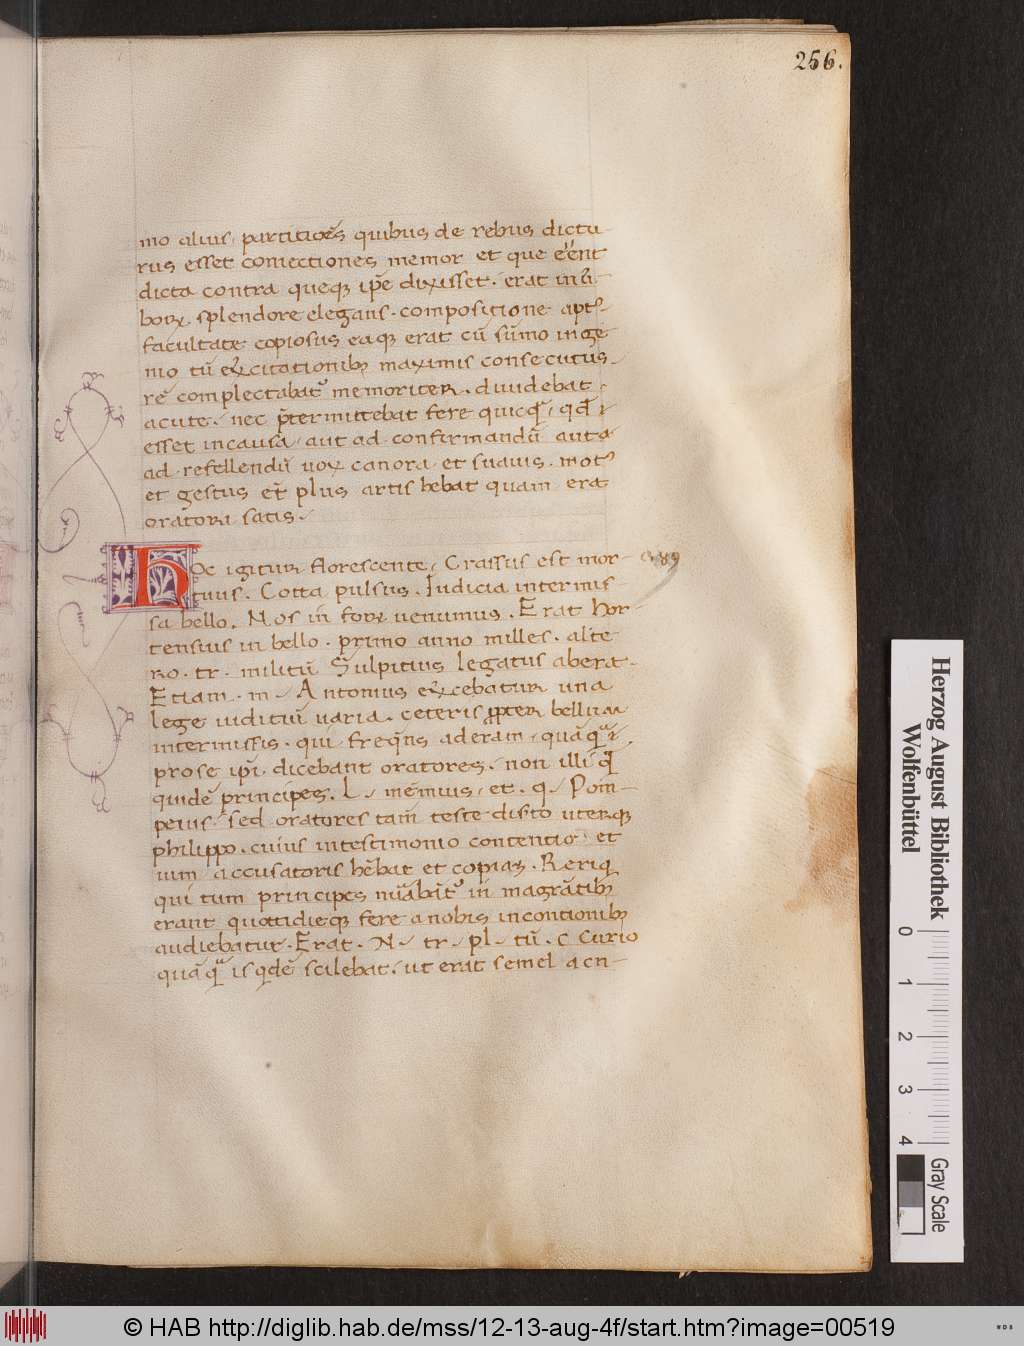 256.
mo alius, partitiões quibus de rebus dictu-
rus esset coniectiones memor et que eent
dicta contra queqꝫ ip̃e dixisset. erat in ũ-
borꝝ splendore elegans. compositione apt᷒
facultate copiosus eaqꝫ erat cũ sũmo inge
nio tũ exercitationibꝫ maximis consecutus.
rẽ complectabat᷒ memoriter. diuidebat
acute. nec p̃termittebat fere quicq̃, qd̃ ĩ
esset in causa, aut ad confirmandũ aut
ad refellendũ uox canora et suauis. mot᷒
et gestus et̃ plus artis hẽbat quam erat
oratori satis.
Hoc igitur florescente, Crassus est mor-
tuus. Cotta pulsus. Iudicia intermis-
sa bello. Nos in foꝝ uenimus. Erat Hor
tensius in bello. primo anno miles. alte
ro. tr. militũ Sulpitius legatus aberat.
Etiam. m. Antonius exercebatur una
lege iuditiũ uaria. ceteris ꝓpter bellum
intermissis. qui freq̃ns aderam, quãq̃ ĩ
pro se ip̃i dicebant oratores. non illi q̃
quidẽ principes. L. mẽmius, et. q. Pom-
peius, sed oratores tam̃ teste diserto uterqꝫ
philippo. cuius in testimonio contentio et
uim accusatoris hẽbat et copias. Reriq
qui tum principes nũabãt᷒ in magrãtibꝫ
erant quottidieqꝫ fere a nobis in contionibꝫ
audiebatur. Erat. N. tr. pl. tũ. C Curio
quãq̃ is qd̃ẽ scilebat, ut erat semel a cn-
Herzog August Bibliothek
Wolfenbüttel
0 1 2 3 4
Gray Scale
© HAB http://diglib.hab.de/mss/12-13-aug-4f/start.htm?image=00519